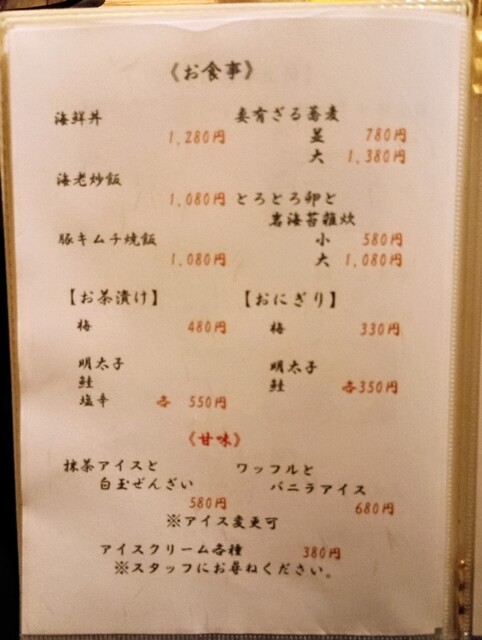 《お食事》
海鮮丼
1,280円
海老炒飯
1,080円
豚キムチ焼飯
1,080円
妻有ざる蕎麦
並 780円
大 1,380円
とろとろ卵と
岩海苔雑炊
小 580円
大 1,080円
【お茶漬け】
梅 480円
明太子
鮭
塩辛 各 550円
【おにぎり】
梅 330円
明太子
鮭 各350円
《甘味》
抹茶アイスと
白玉ぜんざい
580円
※アイス変更可
ワッフルと
バニラアイス
680円
アイスクリーム各種 380円
※スタッフにお尋ねください。